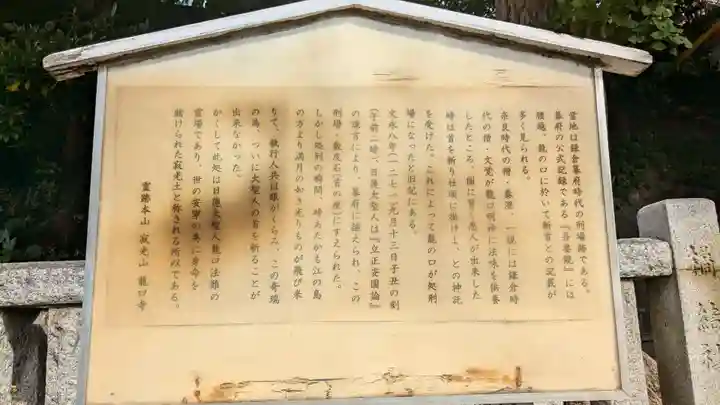 當地は鎌倉幕府時代の刑場跡である。
幕府の公式記録である『吾妻鏡』には
腰越、龍の口に於いて斬首との記載が
多く見られる。
奈良時代の僧・泰澄、一説には鎌倉時
代の僧・文覚が龍口明神に法味を供養
したところ、傍に響く悪人が出来した
時は首を斬り社頭に掛けよ、との神託
を受けた。これによって龍の口が処刑
場になったと旧記にある。
文永八年(一二七一)九月十三日子丑の刻
(午前一時、日蓮大聖人は『立正安国論』
の諫言により、幕府に捕えられ、この
刑場・敷皮石(首の座)にすえられた。
しかし処刑の瞬間、時あたかも江の島
の方より満月の如き光りものが飛び来
りて、執行人共は眼がくらみ、この奇瑞
の為、ついに大聖人の首を斬ることが
出来なかった。
かくして此処は日蓮大聖人龍口法難の
霊場であり、世の安寧の為に身命を
賭けられた寂光土と称される所以である。
霊跡本山 寂光山 龍口寺